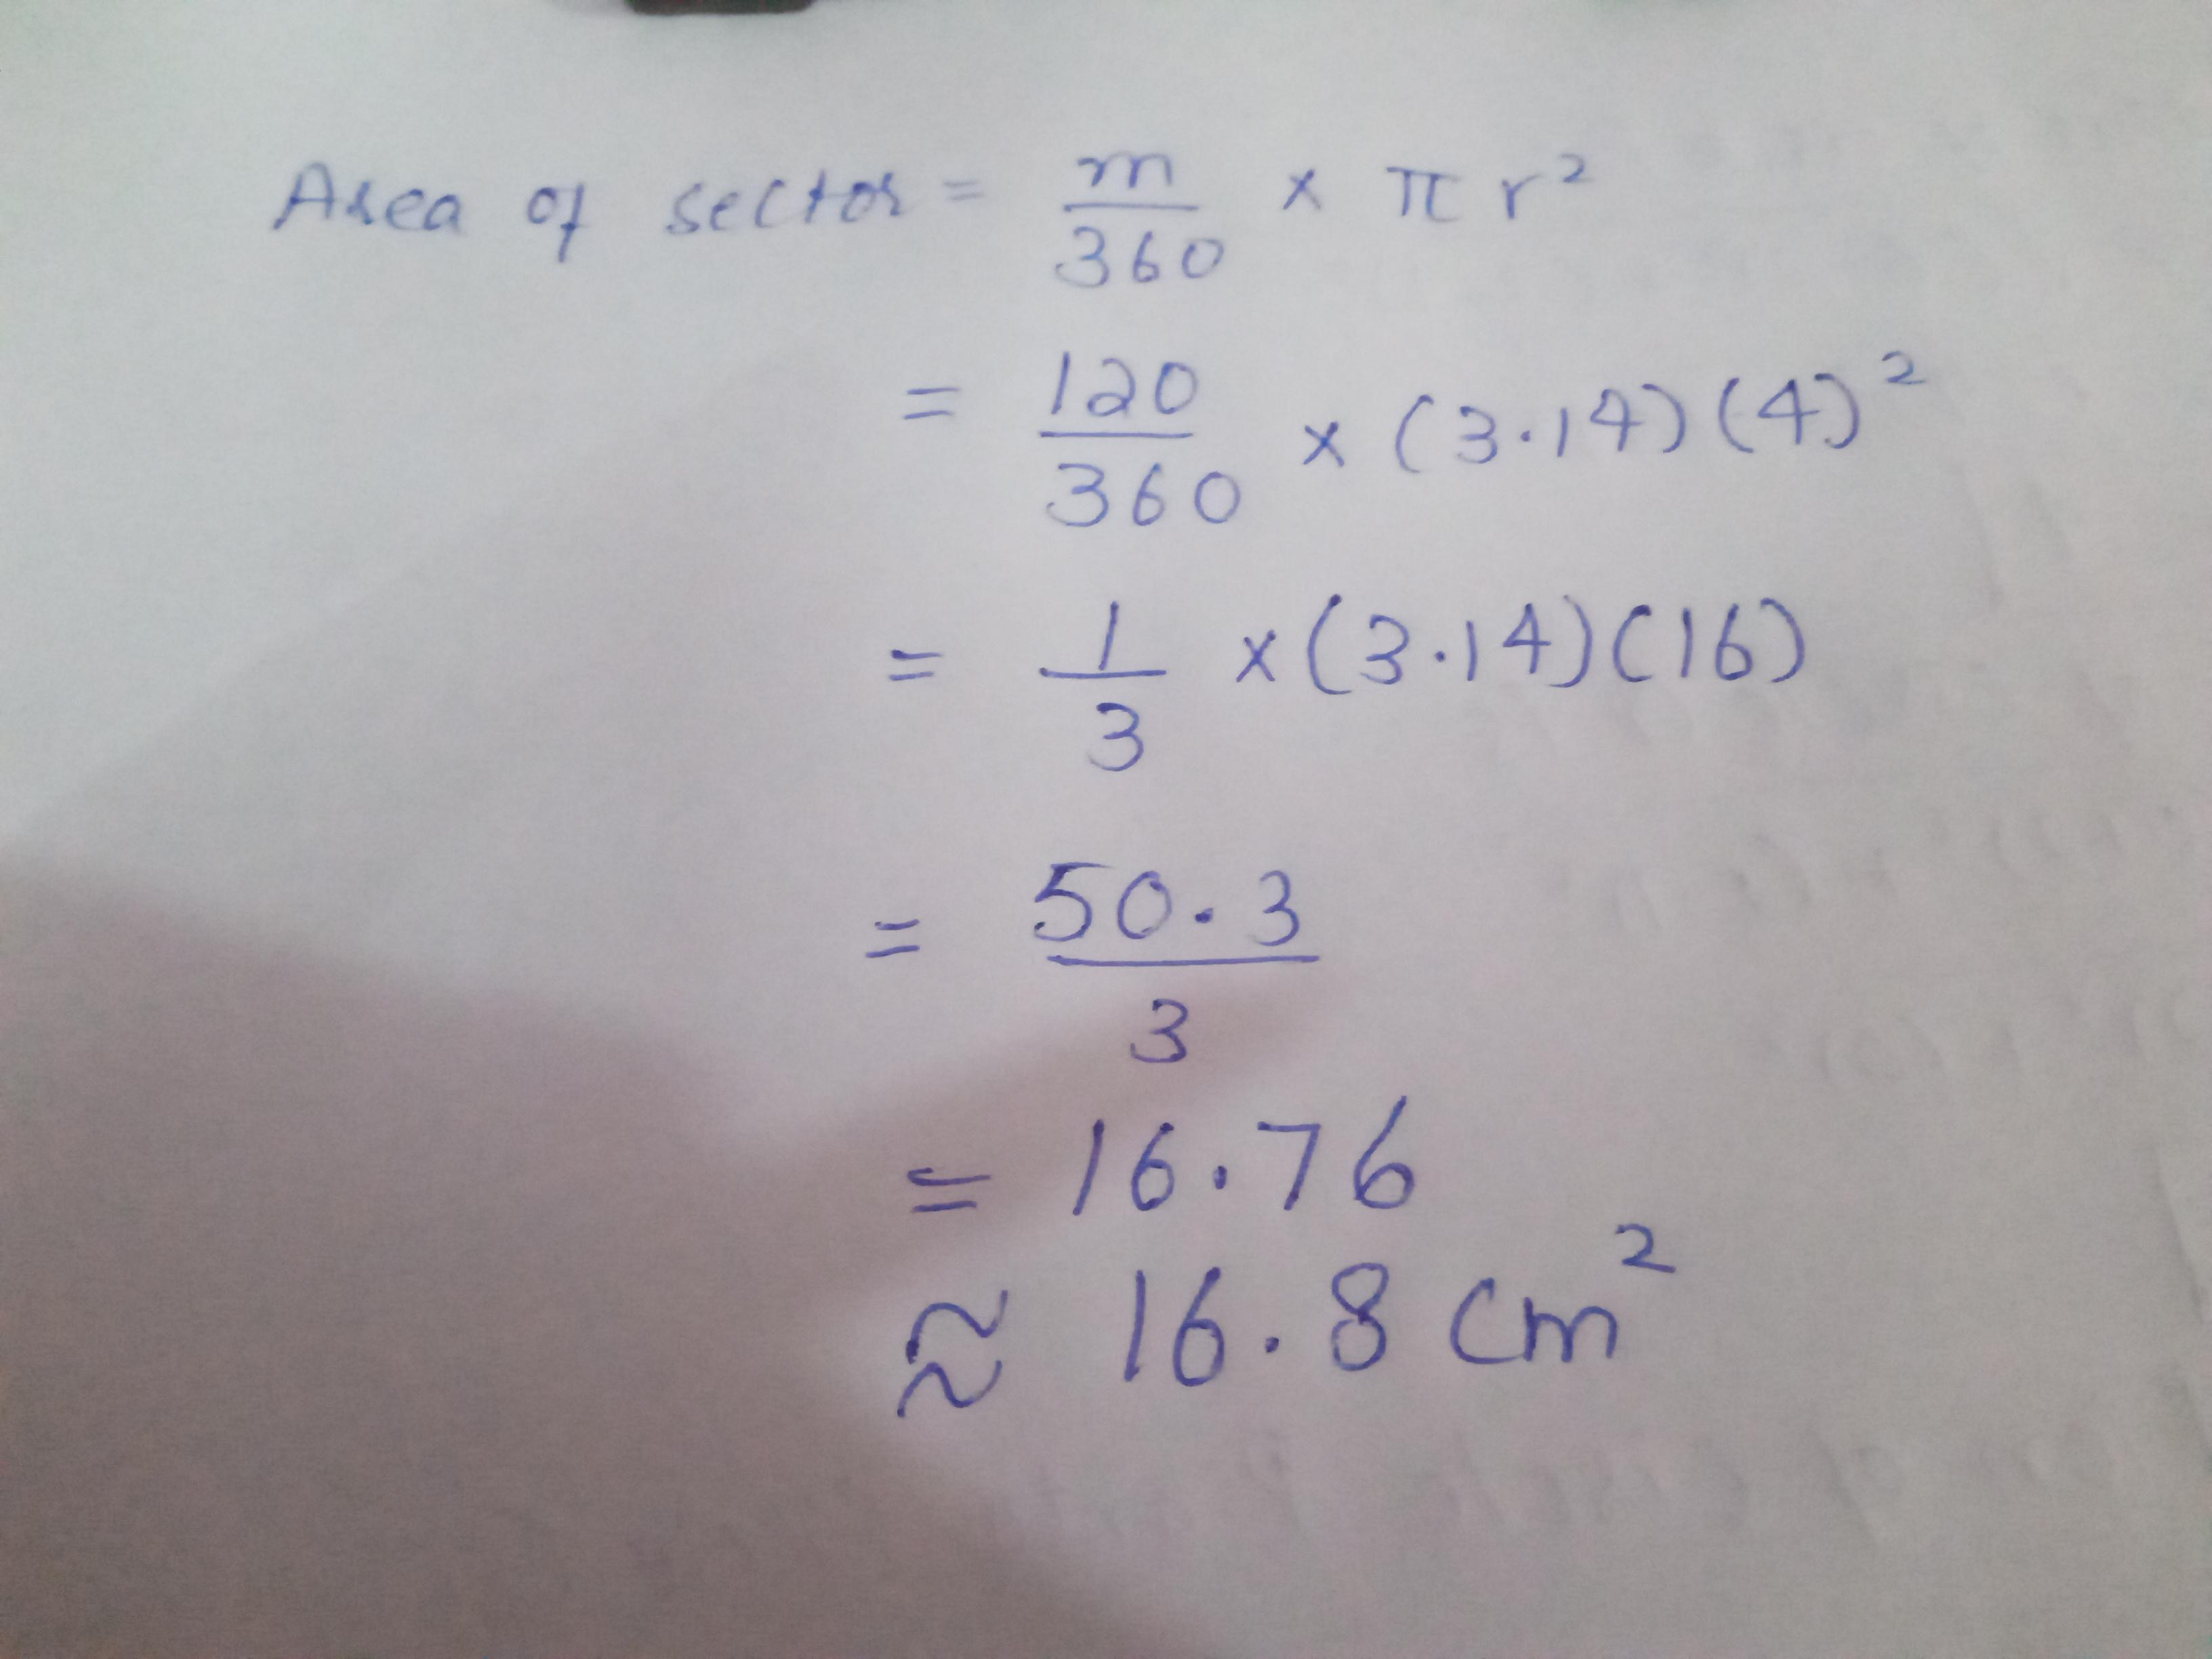 Area of sector = m/360 × π r²
= 120/360 × (3.14)(4)²
= 1/3 × (3.14)(16)
= 50.3/3
= 16.76
≈ 16.8 cm²